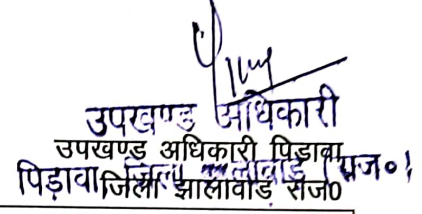 उपखण्ड अधिकारी
उपखण्ड अधिकारी पिड़ावा
पिड़ावा जिला झालावाड़ (राज०)
जिला झालावाड राज0